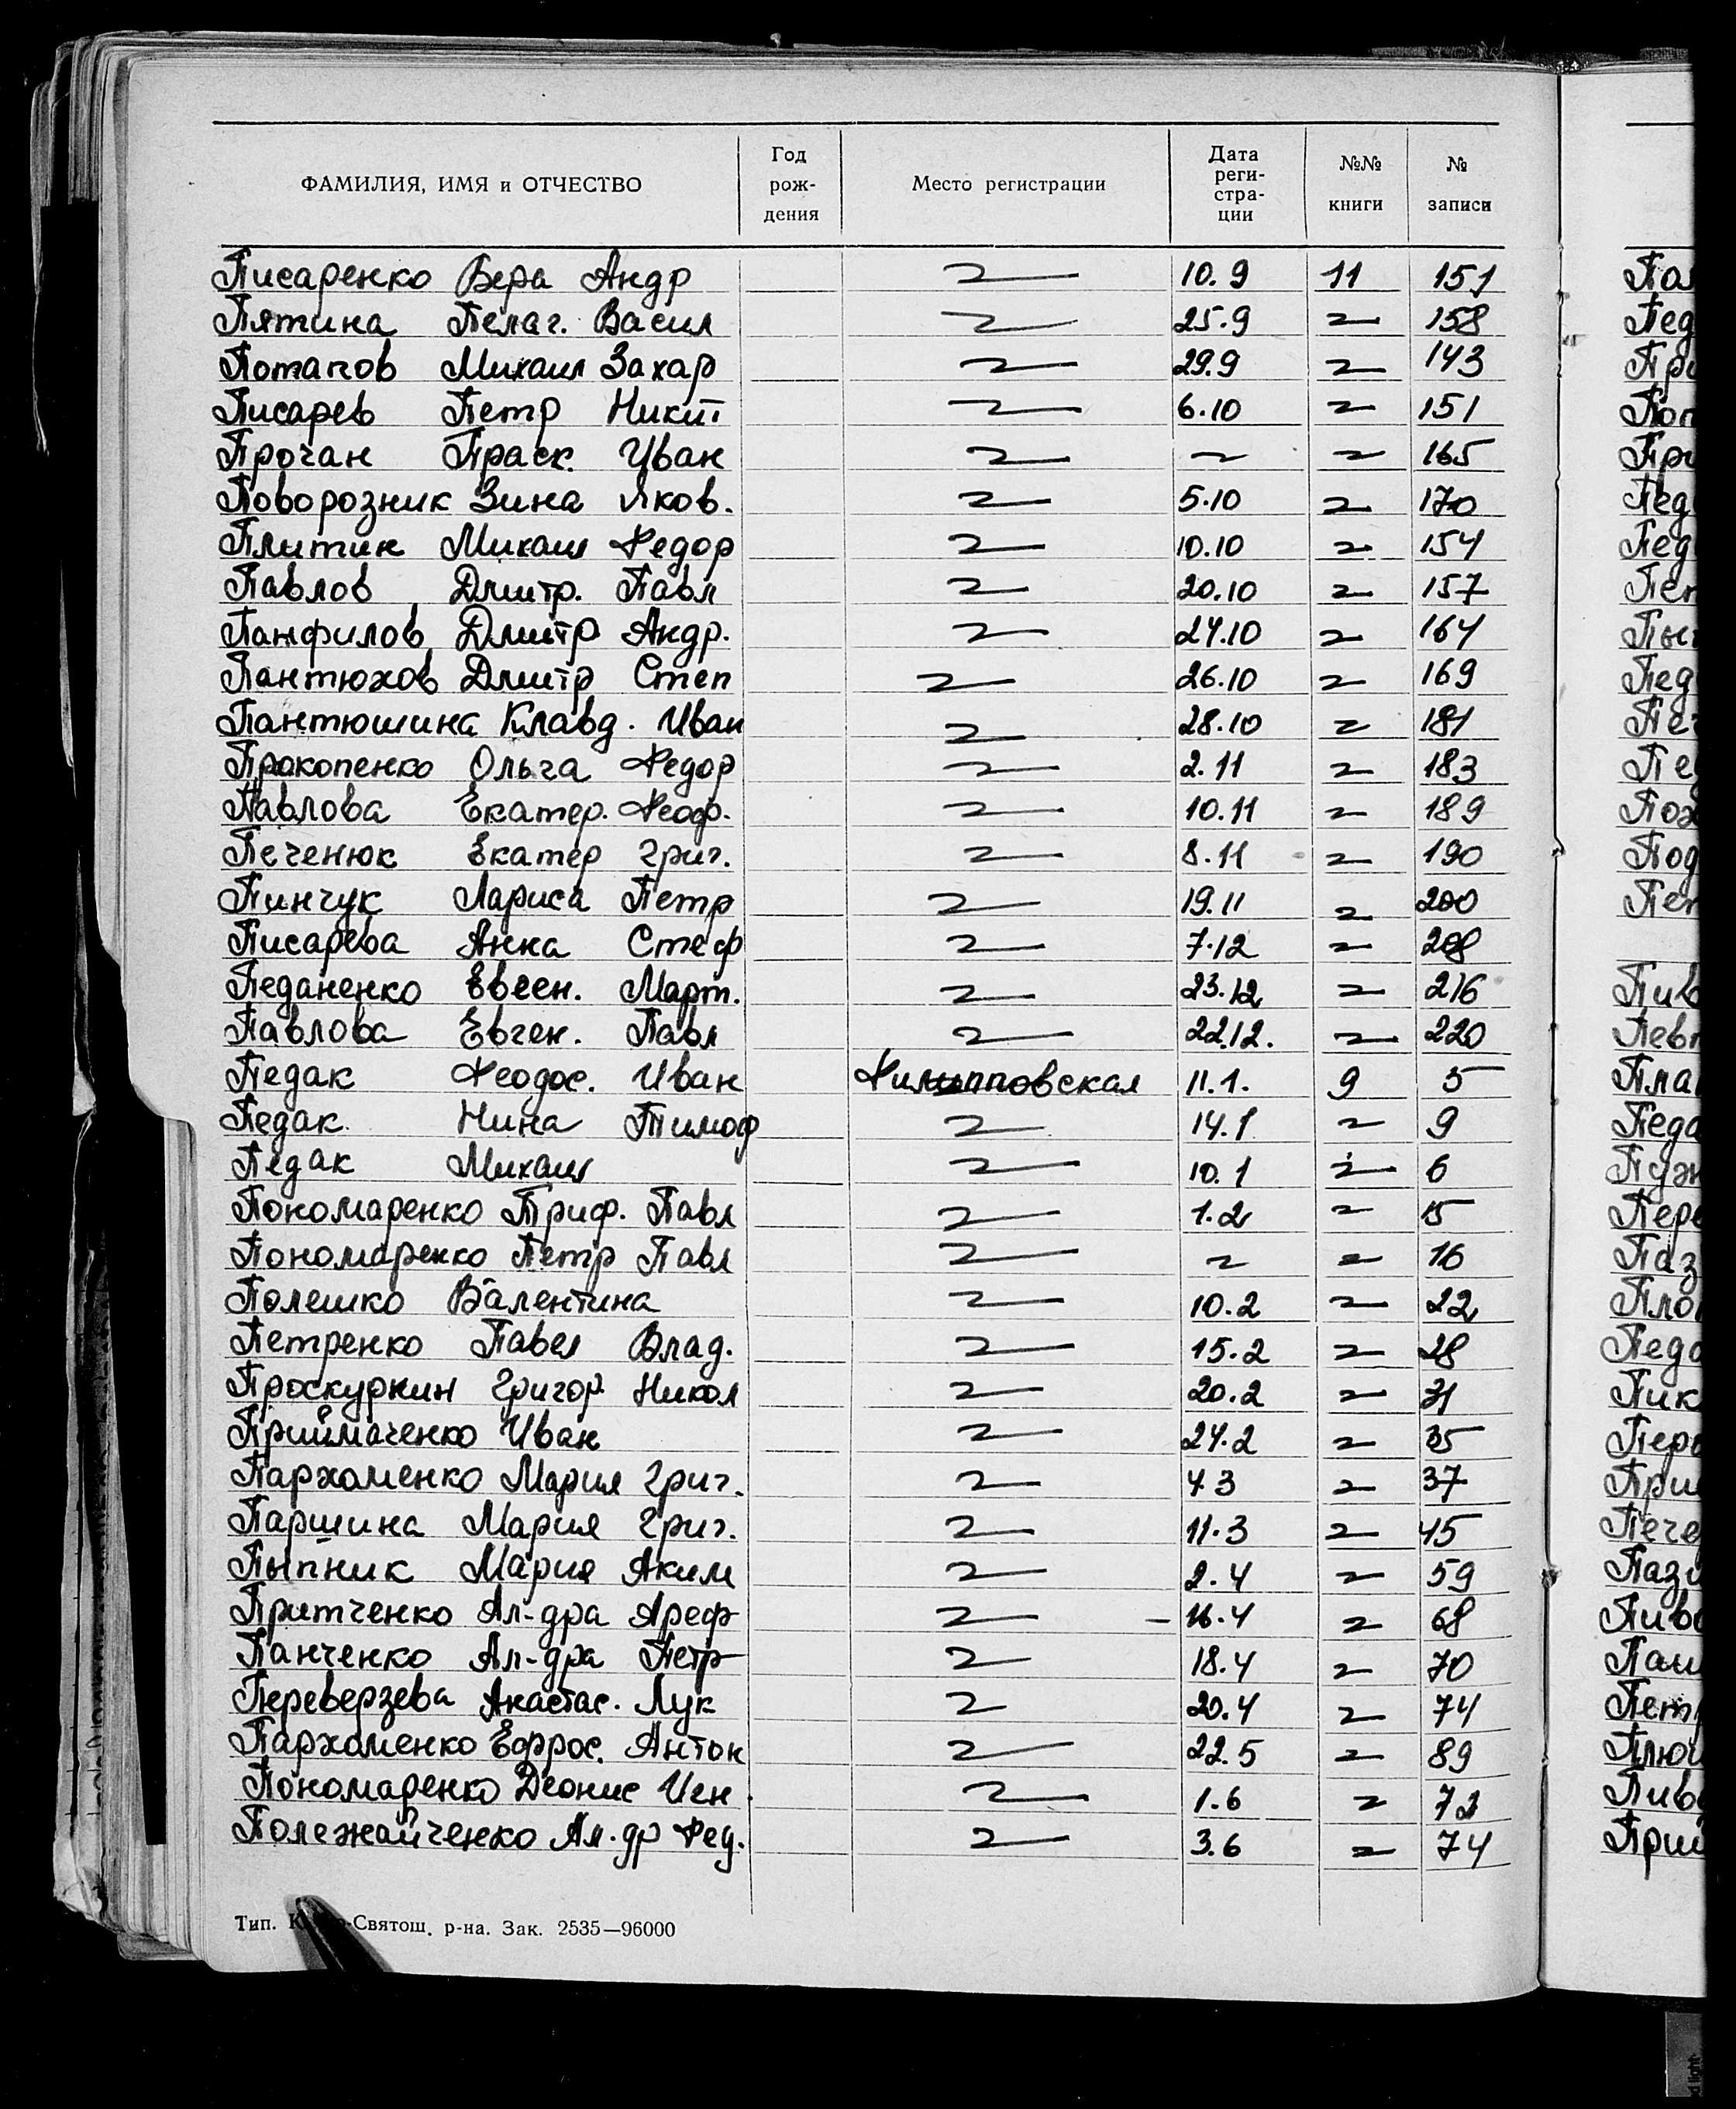 ФАМИЛИЯ, ИМЯ и ОТЧЕСТВО Год рож- дения Место регистрации Дата реги- стра- ции №№ книги № записи
Писаренко Вера Андр 10.9 11 151
Пятина Пелаг. Васил 25.9 158
Потапов Михаил Захар 29.9 143
Писарев Петр Никит 6.10 151
Прочан Праск. Иван 165
Поворозник Зина Яков. 5.10 170
Плитик Михаил Федор 10.10 154
Павлов Дмитр. Павл 20.10 157
Панфилов Дмитр Андр. 24.10 164
Пантюхов Дмитр Степ 26.10 169
Пантюшина Клавд. Иван 28.10 181
Прокопенко Ольга Федор 2.11 183
Павлова Екатер. Феоф. 10.11 189
Печенюк Екатер Григ. 8.11 190
Пинчук Лариса Петр 19.11 200
Писарева Анна Стеф 7.12 208
Педаненко Евген. Март. 23.12 216
Павлова Евген. Павл 22.12. 220
Педак Феодос. Иван Филипповская 11.1. 9 5
Педак Нина Тимоф 14.1 9
Педак Михаил 10.1 6
Пономаренко Триф. Павл 1.2 15
Пономаренко Петр Павл 16
Полешко Валентина 10.2 22
Петренко Павел Влад. 15.2 28
Проскурнин Григор Никол 20.2 31
Приймаченко Иван 24.2 35
Пархоменко Мария Григ. 4.3 37
Паршина Мария Григ. 11.3 45
Пыпник Мария Аким 2.4 59
Притченко Ал-дра Ареф 16.4 68
Панченко Ал-дра Петр 18.4 70
Переверзева Анастас. Лук 20.4 74
Пархоменко Ефрос. Антон 22.5 89
Пономаренко Деонис 1.6 72
Полежайченко Ал.др Фед. 3.6 74
Тип. -Святош. р-на. Зак. 2535—96000